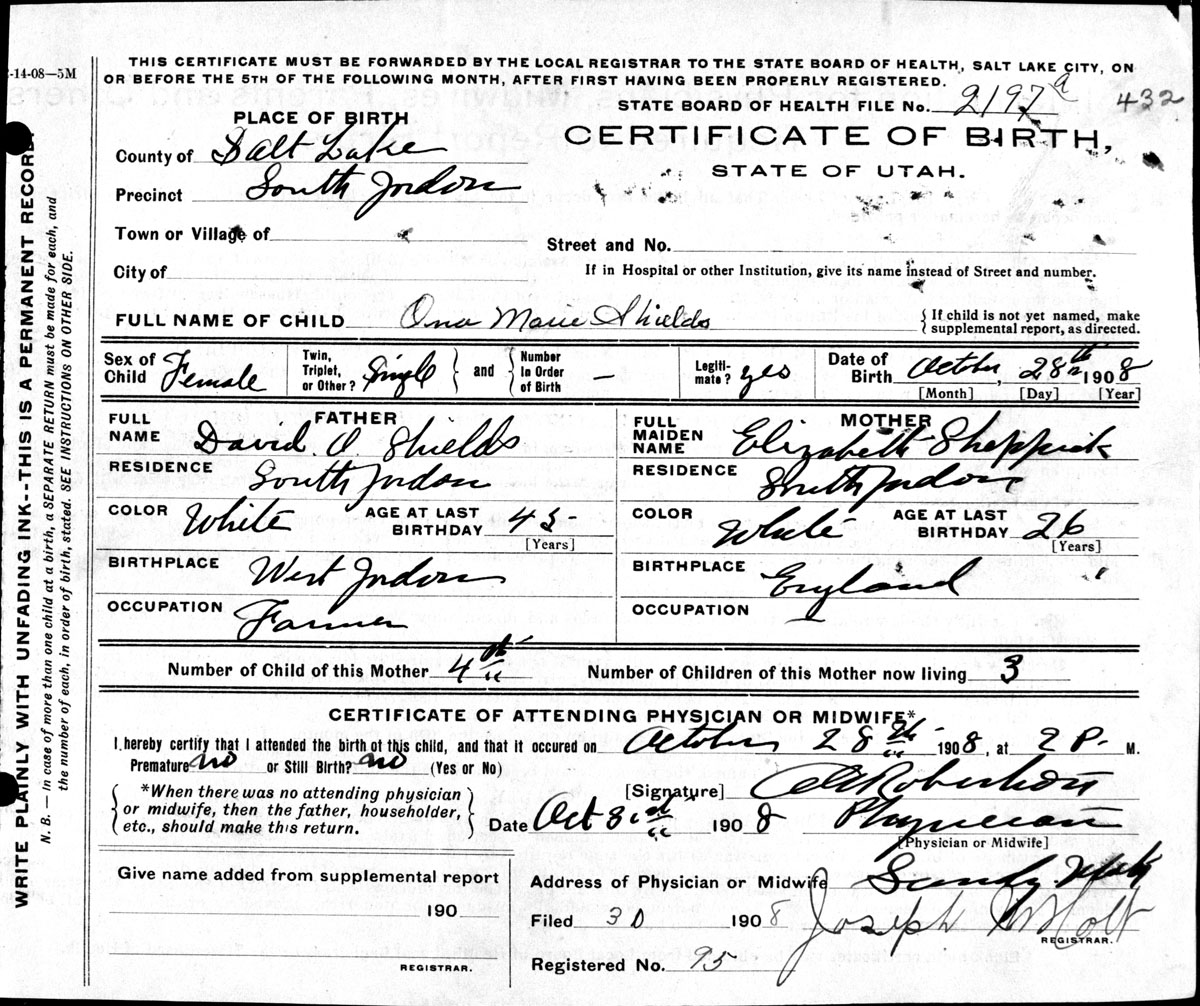 2-14-08—5M
THIS CERTIFICATE MUST BE FORWARDED BY THE LOCAL REGISTRAR TO THE STATE BOARD OF HEALTH, SALT LAKE CITY, ON
OR BEFORE THE 5TH OF THE FOLLOWING MONTH, AFTER FIRST HAVING BEEN PROPERLY REGISTERED.
STATE BOARD OF HEALTH FILE No. 2197 a 432
PLACE OF BIRTH
CERTIFICATE OF BIRTH,
STATE OF UTAH.
County of Salt Lake
Precinct South Jordon
Town or Village of
Street and No.
City of
If in Hospital or other Institution, give its name instead of Street and number.
FULL NAME OF CHILD Ona Marie Shields { If child is not yet named, make supplemental report, as directed.
Sex of Child Female Twin, Triplet, or Other? Single } and { Number In Order of Birth — Legiti-mate? yes Date of Birth October, 28th 1908
[Month] [Day] [Year]
FATHER
FULL NAME David O. Shields
RESIDENCE South Jordon
COLOR White AGE AT LAST BIRTHDAY 45
[Years]
BIRTHPLACE West Jordon
OCCUPATION Farmer
MOTHER
FULL MAIDEN NAME Elizabeth Sheppick
RESIDENCE South Jordon
COLOR White AGE AT LAST BIRTHDAY 26
[Years]
BIRTHPLACE England
OCCUPATION
Number of Child of this Mother 4th Number of Children of this Mother now living 3
CERTIFICATE OF ATTENDING PHYSICIAN OR MIDWIFE*
I hereby certify that I attended the birth of this child, and that it occured on October 28th 1908, at 2 P. M.
Premature no or Still Birth? no (Yes or No)
{ *When there was no attending physician or midwife, then the father, householder, etc., should make this return. }
[Signature] Robertson
Date Oct 31st 1908 Physician
[Physician or Midwife]
Give name added from supplemental report
190
REGISTRAR.
Address of Physician or Midwife Sandy Utah
Filed 30 1908 Joseph M Holt
REGISTRAR.
Registered No. 95
WRITE PLAINLY WITH UNFADING INK--THIS IS A PERMANENT RECORD.
N. B. — in case of more than one child at a birth, a SEPARATE RETURN must be made for each, and
the number of each, in order of birth, stated. SEE INSTRUCTIONS ON OTHER SIDE.